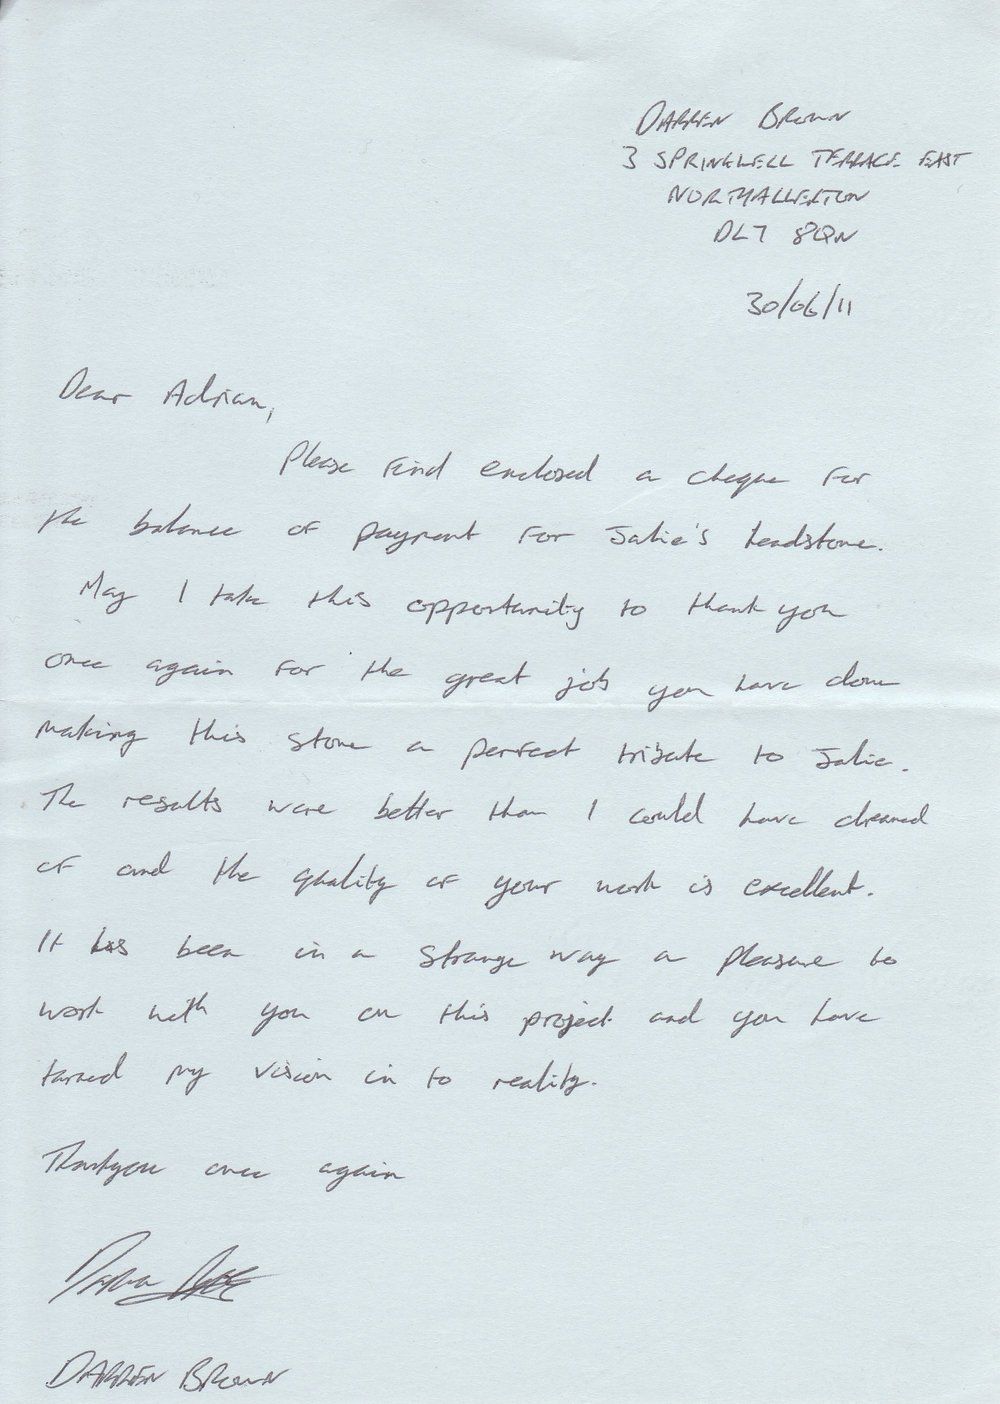 DARREN BROWN
3 SPRINGWELL TERRACE EAST
NORTHALLERTON
DL7 8QN
30/06/11
Dear Adrian,
Please find enclosed a cheque for
the balance of payment for Julie's headstone.
May I take this opportunity to thank you
once again for the great job you have done
making this stone a perfect tribute to Julie.
The results were better than I could have dreamed
of and the quality of your work is excellent.
It has been in a strange way a pleasure to
work with you on this project and you have
turned my vision in to reality.
Thankyou once again
DARREN BROWN